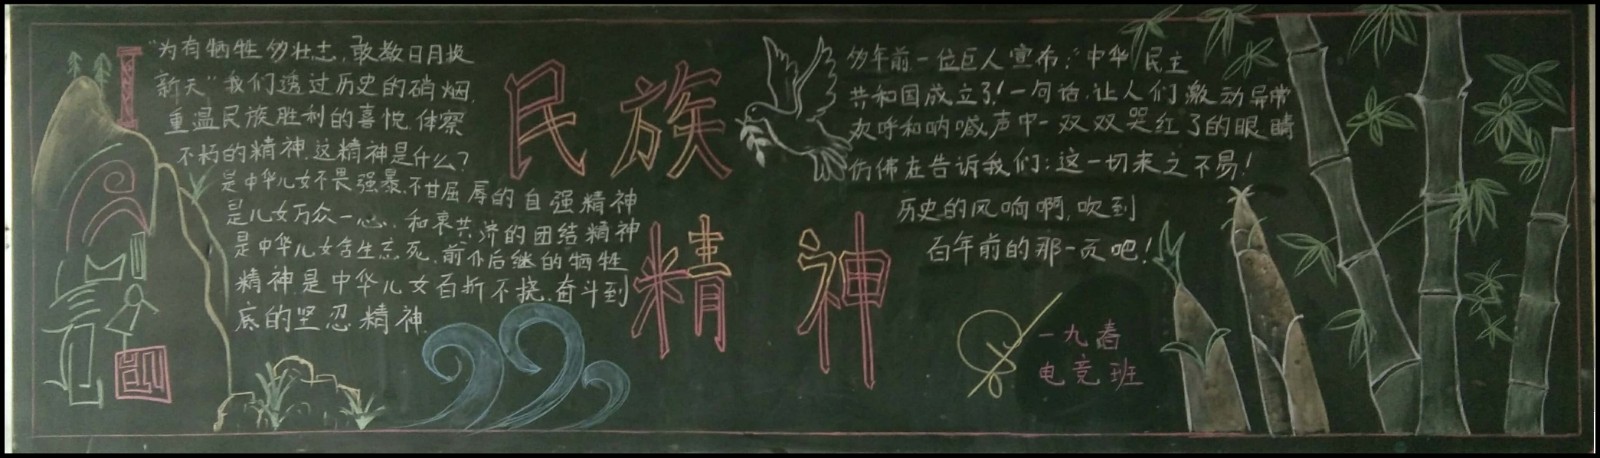 "为有牺牲多壮志，敢教日月换
新天"我们透过历史的硝烟，
重温民族胜利的喜悦，体察
不朽的精神，这精神是什么？
是中华儿女不畏强暴，不甘屈辱的自强精神
是儿女万众一心，和衷共济的团结精神
是中华儿女舍生忘死，前仆后继的牺牲
精神是中华儿女百折不挠，奋斗到
底的坚忍精神
民族
精神
多年前一位巨人宣布："中华民主
共和国成立了！一句话，让人们激动异常
欢呼和呐喊声中一双双哭红了的眼睛
仿佛在告诉我们：这一切来之不易！
历史的风响啊，吹到
百年前的那一页吧！
一九春
电竞班